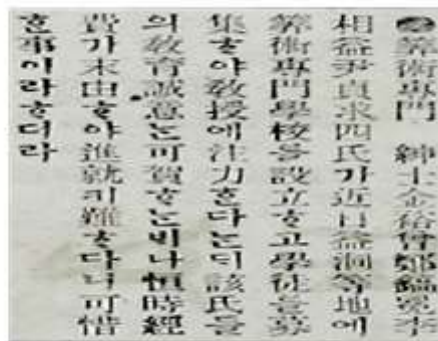 ●算術專門 紳士金裕鄭李
相益尹貞求四氏가近日益洞等地에
算術專門學校을設立ᄒᆞ고學徒을募
集ᄒᆞ야敎授에注力ᄒᆞᆫ다ᄂᆞᆫ디該氏을
의敎育誠意ᄂᆞᆫ可賀ᄒᆞᄂᆞᆫ비나恒時經
費가末由ᄒᆞ야進就키難ᄒᆞ다니可惜
ᄒᆞᆫ事이라ᄒᆞ더라